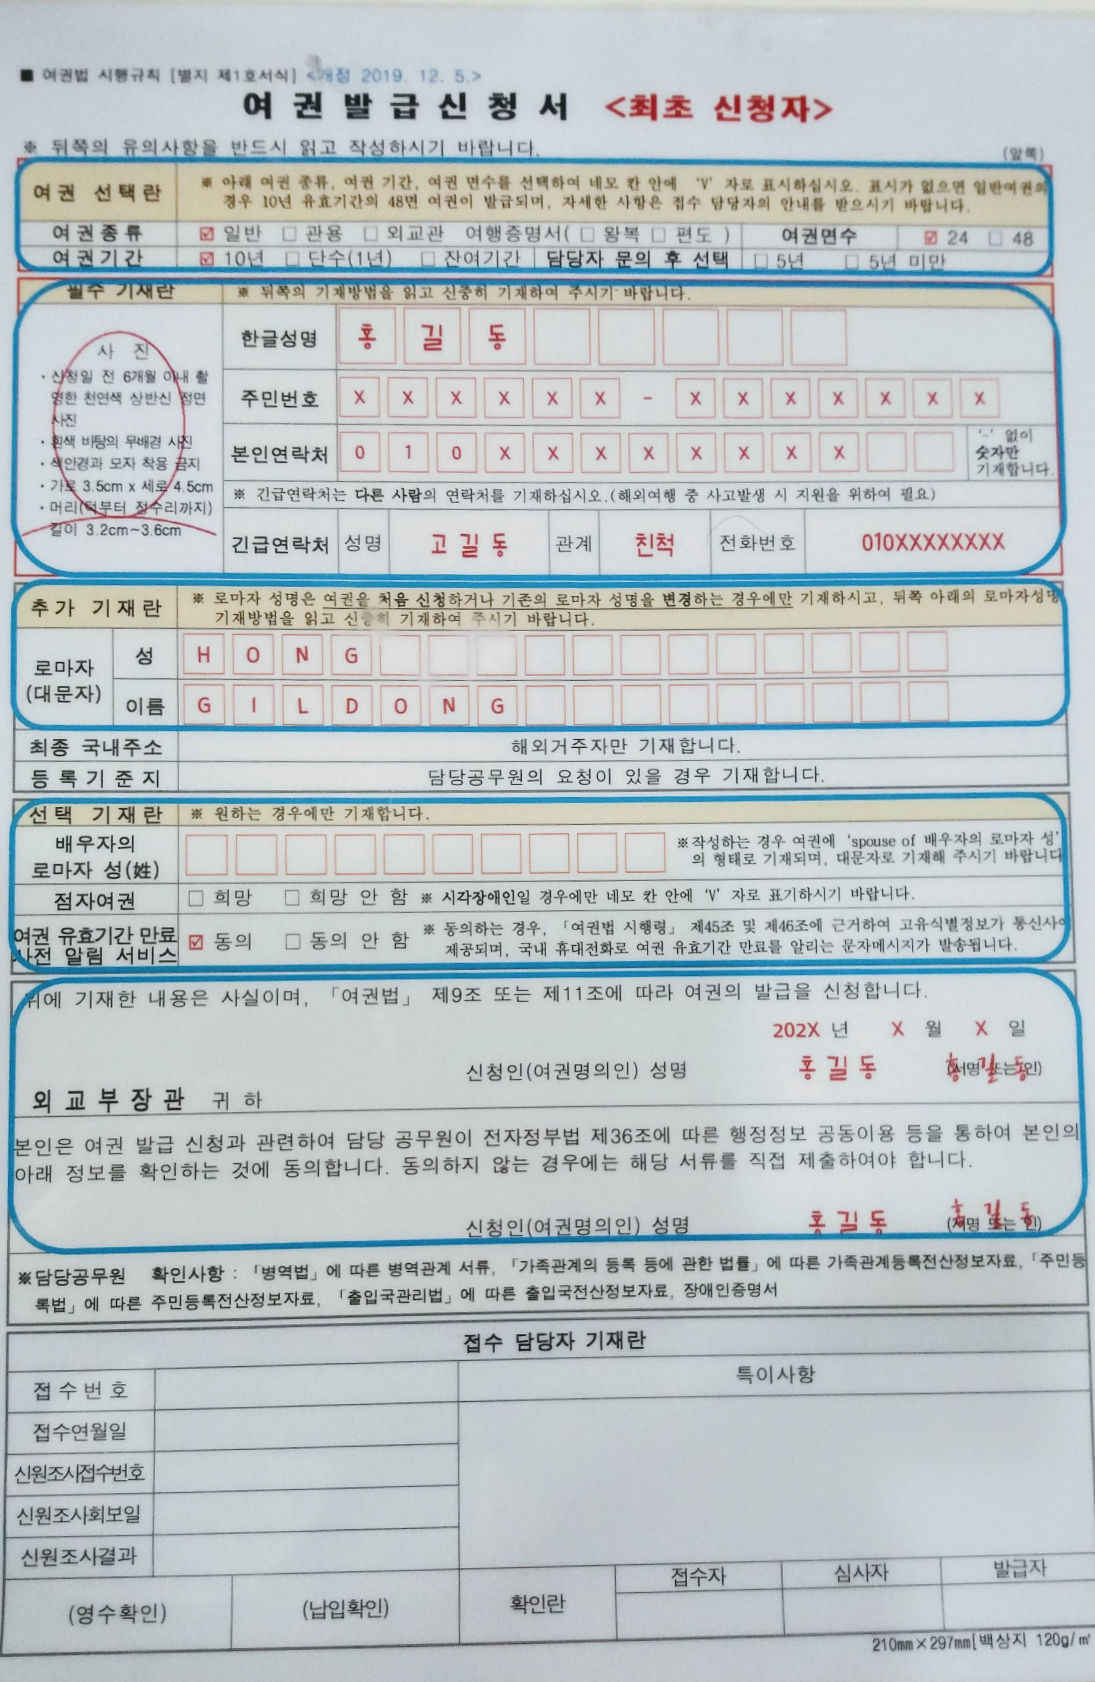 ■ 여권법 시행규칙 [별지 제1호서식] <개정 2019. 12. 5.>
여 권 발 급 신 청 서 <최초 신청자>
※ 뒤쪽의 유의사항을 반드시 읽고 작성하시기 바랍니다.
(앞쪽)
여권 선택란
※ 아래 여권 종류, 여권 기간, 여권 면수를 선택하여 네모 칸 안에 'V' 자로 표시하십시오. 표시가 없으면 일반여권의
경우 10년 유효기간의 48면 여권이 발급되며, 자세한 사항은 접수 담당자의 안내를 받으시기 바랍니다.
여권종류 ☑ 일반 □ 관용 □ 외교관 여행증명서( □ 왕복 □ 편도 ) 여권면수 ☑ 24 □ 48
여권기간 ☑ 10년 □ 단수(1년) □ 잔여기간 담당자 문의 후 선택 □ 5년 □ 5년 미만
필수 기재란 ※ 뒤쪽의 기재방법을 읽고 신중히 기재하여 주시기 바랍니다.
사 진
· 신청일 전 6개월 이내 촬
영한 천연색 상반신 정면
사진
· 흰색 바탕의 무배경 사진
· 색안경과 모자 착용 금지
· 가로 3.5cm x 세로 4.5cm
· 머리(턱부터 정수리까지)
길이 3.2cm~3.6cm
한글성명 홍 길 동
주민번호 X X X X X X - X X X X X X X
본인연락처 0 1 0 X X X X X X X X
'-' 없이
숫자만
기재합니다.
※ 긴급연락처는 다른 사람의 연락처를 기재하십시오.(해외여행 중 사고발생 시 지원을 위하여 필요)
긴급연락처 성명 고길동 관계 친척 전화번호 010XXXXXXXX
추가 기재란
※ 로마자 성명은 여권을 처음 신청하거나 기존의 로마자 성명을 변경하는 경우에만 기재하시고, 뒤쪽 아래의 로마자성명
기재방법을 읽고 신중히 기재하여 주시기 바랍니다.
로마자
(대문자)
성 H O N G
이름 G I L D O N G
최종 국내주소 해외거주자만 기재합니다.
등록기준지 담당공무원의 요청이 있을 경우 기재합니다.
선택 기재란 ※ 원하는 경우에만 기재합니다.
배우자의
로마자 성(姓)
※작성하는 경우 여권에 'spouse of 배우자의 로마자 성'
의 형태로 기재되며, 대문자로 기재해 주시기 바랍니다
점자여권 □ 희망 □ 희망 안 함 ※ 시각장애인일 경우에만 네모 칸 안에 'V' 자로 표기하시기 바랍니다.
여권 유효기간 만료
사전 알림 서비스
☑ 동의 □ 동의 안 함
※ 동의하는 경우, 「여권법 시행령」 제45조 및 제46조에 근거하여 고유식별정보가 통신사에
제공되며, 국내 휴대전화로 여권 유효기간 만료를 알리는 문자메시지가 발송됩니다.
위에 기재한 내용은 사실이며, 「여권법」 제9조 또는 제11조에 따라 여권의 발급을 신청합니다.
202X 년 X 월 X 일
신청인(여권명의인) 성명 홍길동 홍길동 (서명 또는 인)
외교부장관 귀하
본인은 여권 발급 신청과 관련하여 담당 공무원이 전자정부법 제36조에 따른 행정정보 공동이용 등을 통하여 본인의
아래 정보를 확인하는 것에 동의합니다. 동의하지 않는 경우에는 해당 서류를 직접 제출하여야 합니다.
신청인(여권명의인) 성명 홍길동 홍길동 (서명 또는 인)
※담당공무원 확인사항 : 「병역법」에 따른 병역관계 서류, 「가족관계의 등록 등에 관한 법률」에 따른 가족관계등록전산정보자료, 「주민등
록법」에 따른 주민등록전산정보자료, 「출입국관리법」에 따른 출입국전산정보자료, 장애인증명서
접수 담당자 기재란
접수번호
특이사항
접수연월일
신원조사접수번호
신원조사회보일
신원조사결과
(영수확인) (납입확인) 확인란 접수자 심사자 발급자
210mm×297mm[백상지 120g/㎡